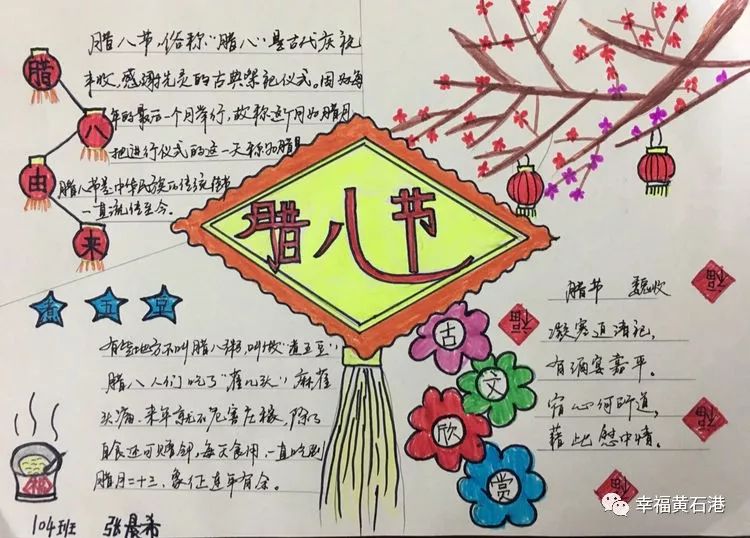 腊八由来
腊八节,俗称"腊八"是古代庆祝
丰收,感谢先灵的古典祭祀仪式。因如每
年的最后一个月举行,故称这个月如腊月
把进行仪式的这一天称如腊日
腊八节是中华民族的传统佳节
一直流传至今。
腊八节
煮五豆
有些地方不叫腊八粥,叫做"煮五豆",
腊八人们吃了"雀儿头"麻雀
头痛,来年就不危害庄稼,除了
自食还可赠邻,每天食用,一直吃到
腊月二十三,象征连年有余。
104班 张晨希
古
文
欣
赏
腊节 魏收
凝寒迫清祀,
有酒宴嘉平。
宿心何所道,
藉此慰中情。
福
福
福
福
福
幸福黄石港